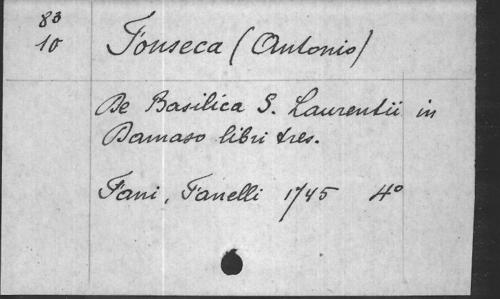 83
10
Fonseca (Antonio)
De Basilica S. Laurentii in
Damaso libri tres.
Fani, Fanelli 1745 4°